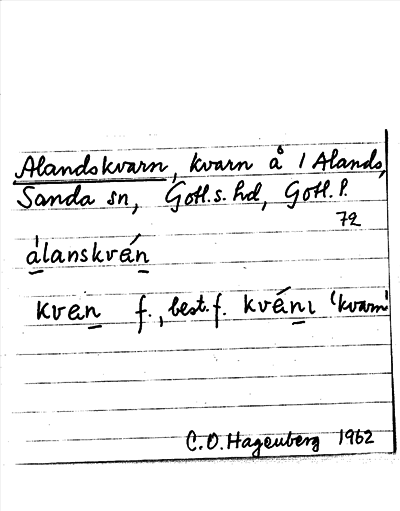 Alandskvarn, kvarn å 1 Alands,
Sanda sn, Gotl.s. hd, Gotl. l.
72
álanskván
kvan f., best. f. kvánı 'kvarn'
C. O. Hagenberg 1962